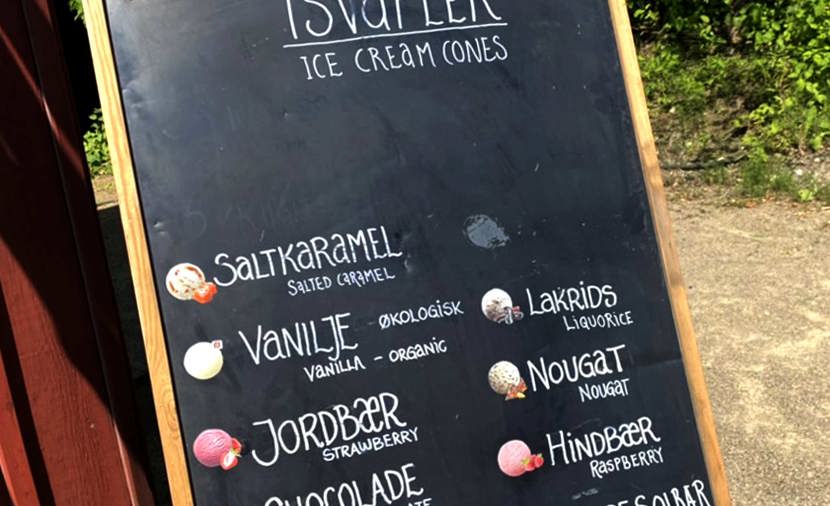 ISVAFLER
ICE CREAM CONES
SALTKARAMEL
SALTED CARAMEL
VANILJE - ØKOLOGISK
VANILLA - ORGANIC
JORDBÆR
STRAWBERRY
CHOCOLADE
LAKRIDS
LIQUORICE
NOUGAT
NOUGAT
HINDBÆR
RASPBERRY